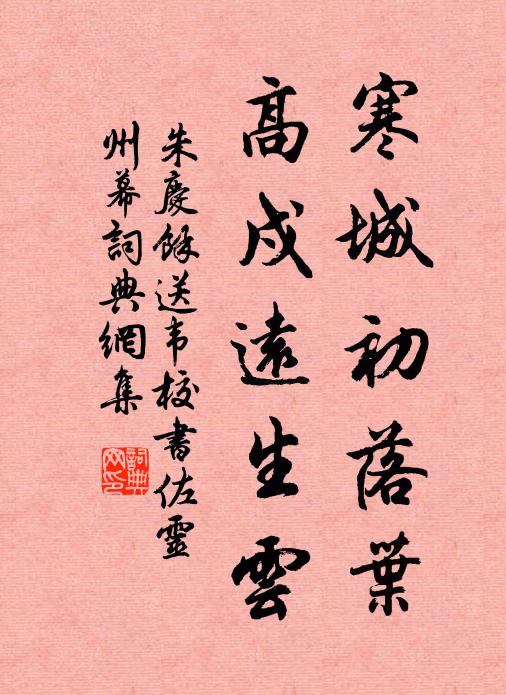 寒城初落葉
高戍遠生雲
朱慶餘送韦校書佐靈
州幕詞典網集
詞典網印